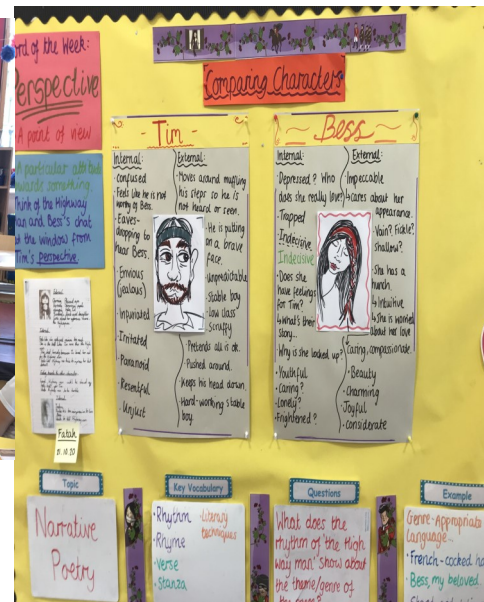 ord of the Week:
Perspective
A point of view
A particular attitude
wards something.
Think of the Highway
man and Bess's chat
at the window from
Tim's perspective.
Comparing Characters
- Tim -
Internal:
·confused
·Feels like he is not
worthy of Bess.
·Eaves-
dropping to
hear Bess.
·Envious
(jealous)
·Infuriated
·Irritated
·Paranoid
·Resentful
·Unjust
External:
·Moves around muffling
his steps so he is
not heard or seen.
·He is putting
on a brave
face.
·Unpredictable
·Stable boy
·low class
·Scruffy
·Pretends all is ok.
·Pushed around.
·Keeps his head down.
·Hard-working stable
boy.
Bess
Internal:
·Depressed? Who
does she really love?
·Trapped
·Indecisive
Indecisive
·Does she
have feelings
for Tim?
What's their
story...
Why is she locked up?
·Youthful
·Caring?
·Lonely?
·Frightened?
External:
Impeccable
cares about her
appearance.
Vain? Fickle?
Shallow?
·She has a
hunch.
Intuitive
She is worried
about her love
Caring, compassionate.
·Beauty
·Charming
·Joyful
·considerate
Fatah
21.10.20
Topic
Narrative
Poetry
Key Vocabulary
·Rhythm
·Rhyme
·Verse
·Stanza
·Literary
techniques
Questions
What does the
rhythm of 'the High
way man' show about
the theme/genre of
Example
Genre-Appropriate
Language-
·French-cocked ha
·Bess, my beloved